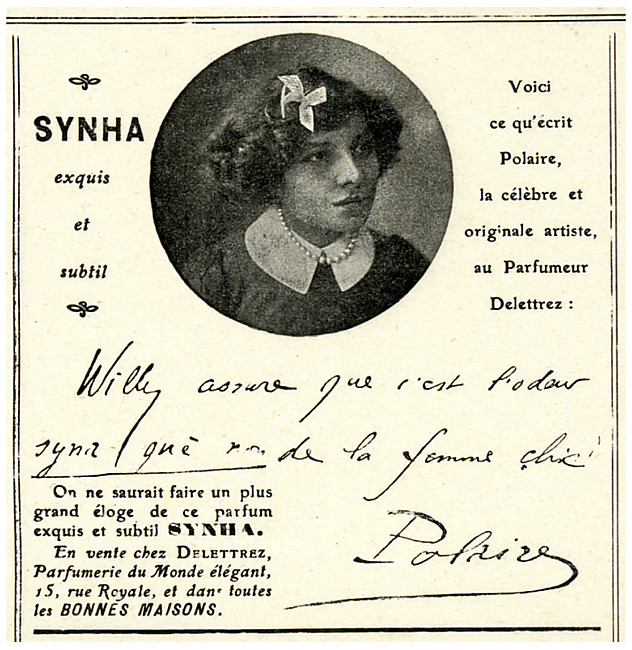 SYNHA
exquis
et
subtil
Voici
ce qu'écrit
Polaire,
la célèbre et
originale artiste,
au Parfumeur
Delettrez :
Willy assure que c'est l'odeur
syna-quà non de la femme chic!
Polaire
On ne saurait faire un plus
grand éloge de ce parfum
exquis et subtil SYNHA.
En vente chez DELETTREZ,
Parfumerie du Monde élégant,
15, rue Royale, et dans toutes
les BONNES MAISONS.